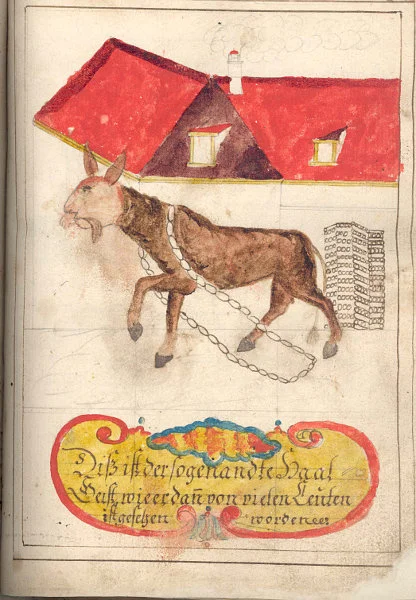 Diß ist der sogenandte Haal
Geist, wie er dañ von vielen Leuten
ist gesehen worden